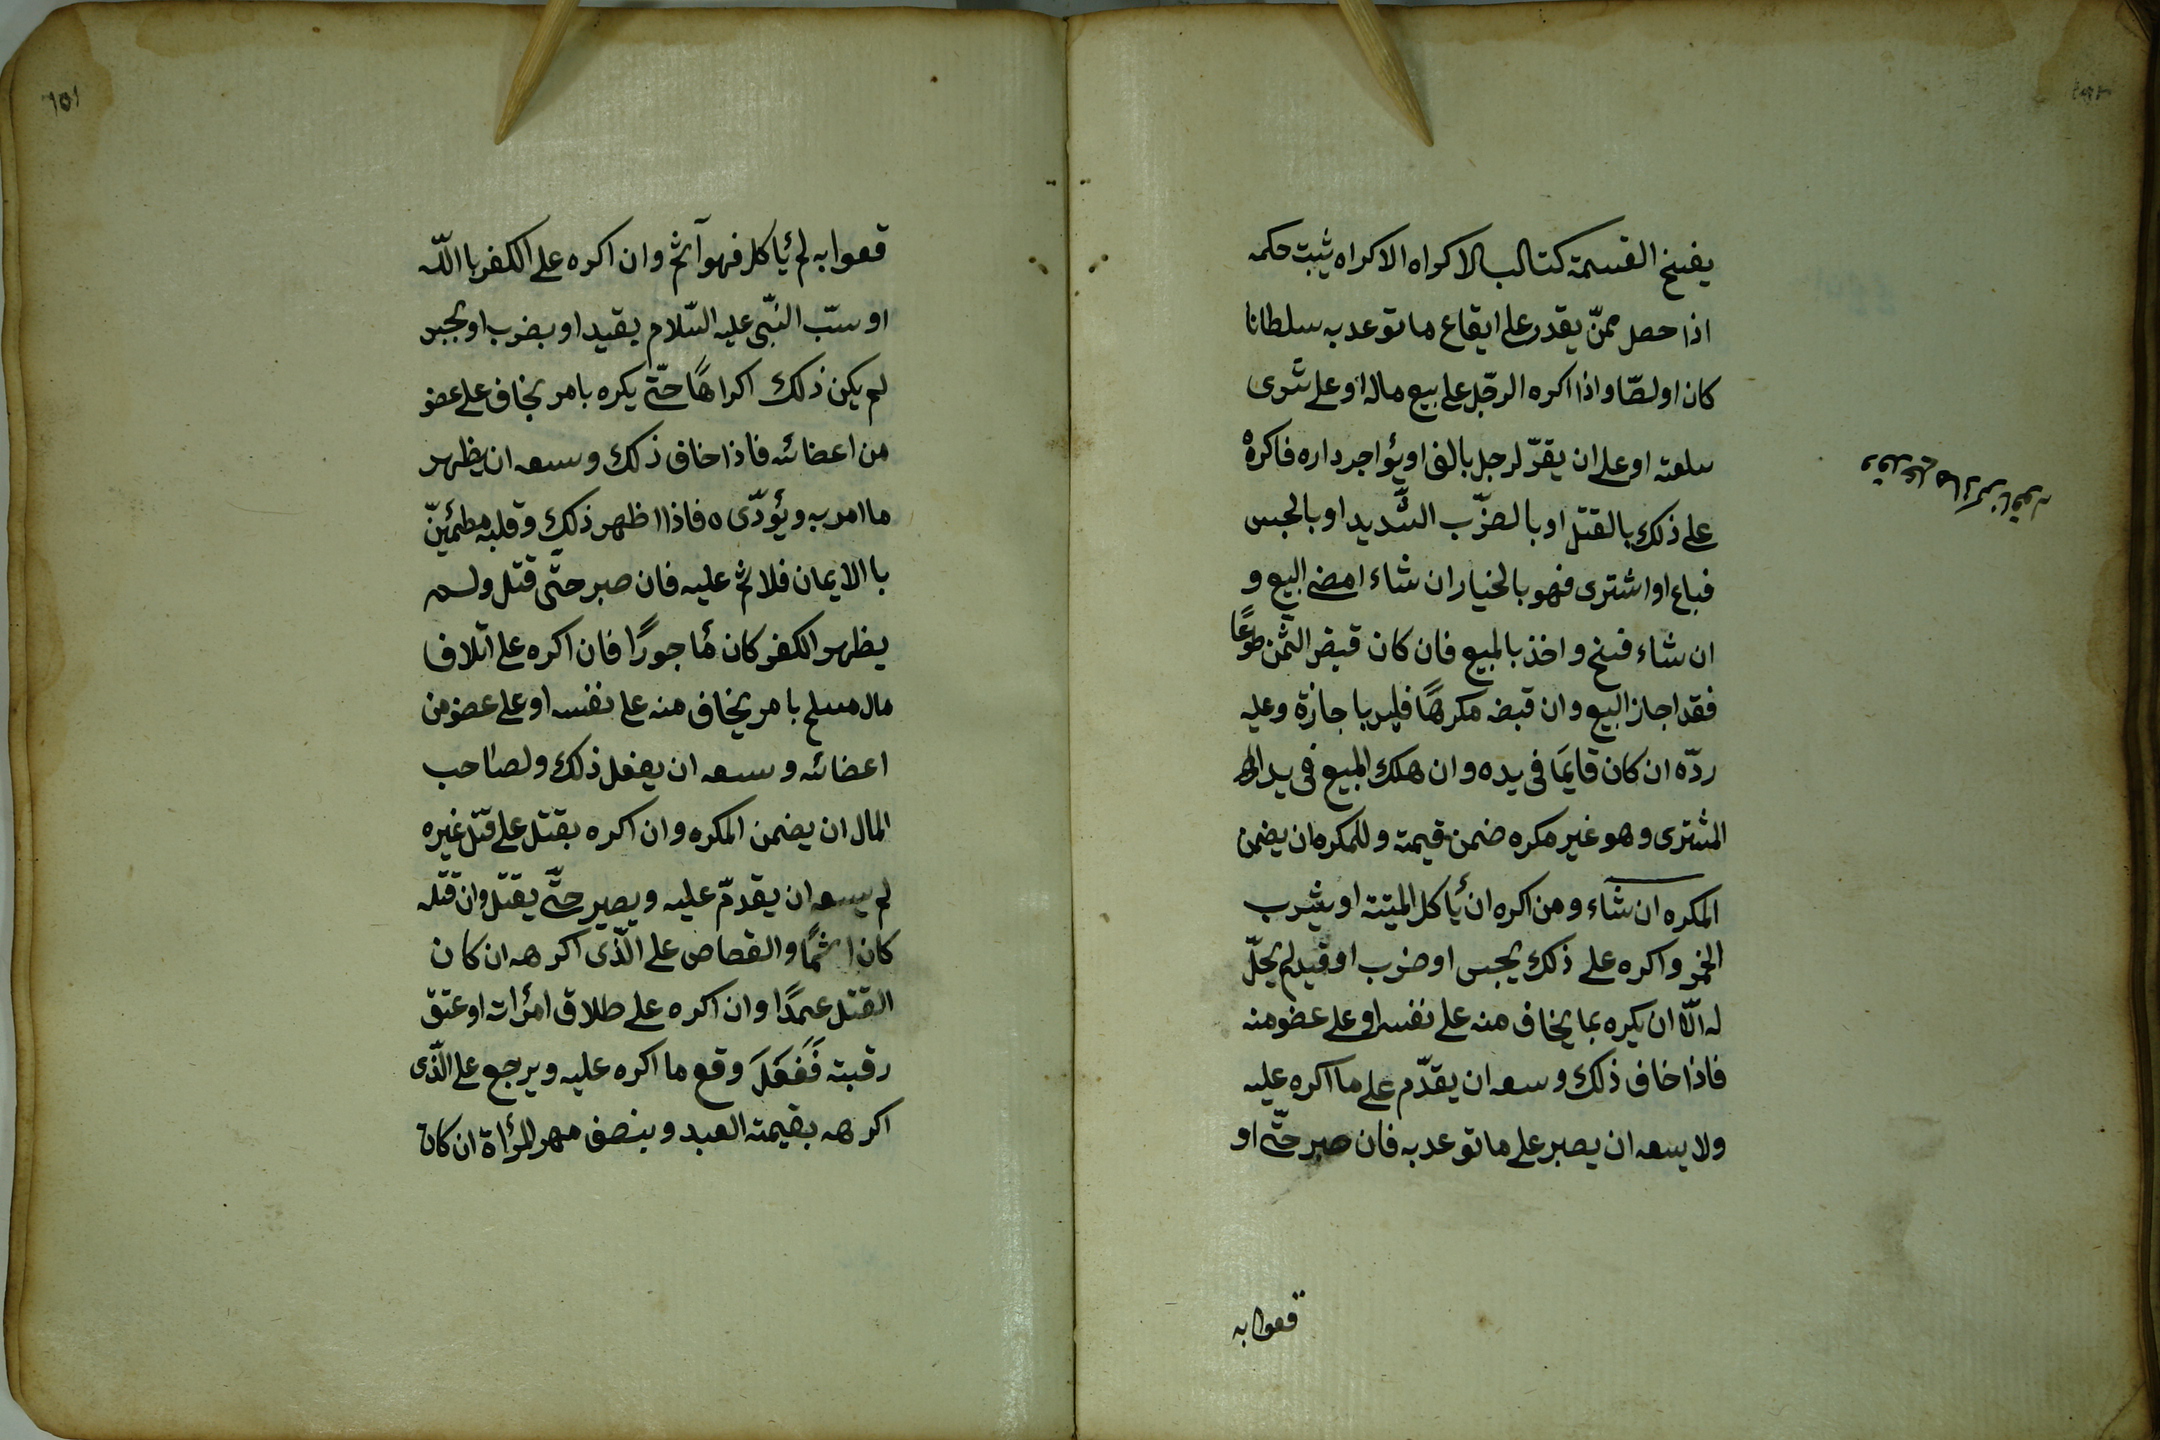 يفسخ القسمة كتاب الاكراه الاكراه يثبت حكمه
اذا حصل ممنّ يقدر على ايقاع ما توعد به سلطانا
كان او لصّا واذا اكره الرجّل على بيع ماله او على شرى
سلعته او على ان يقرّ لرجل بالف او يؤاجر داره فاكره
على ذلك بالقتل او بالضّرب الشّديد او بالحبس
فباع او اشترى فهو بالخيار ان شاء امضى البيع و
ان شاء فسخ واخذ بالمبيع فان كان قبض الثّمن طوعًا
فقد اجاز البيع وان قبضه مكرهًا فليس باجازة وعليه
ردّه ان كان قايمَا فى يده وان هلك المبيع فى يد
المشترى وهو غير مكره ضمن قيمته وللمكره ان يضمن
المكره ان شاء ومن اكره ان يأكل الميتة او يشرب
الخمر واكره على ذلك بحبس او ضرب او قيد لم يحلّ
له الّا ان يكره بما يخاف منه على نفسه او على عضو منه
فاذا خاف ذلك وسعه ان يقدّم على ما اكره عليه
ولا يسعه ان يصبر على ما توعد به فان صبر حتّى او
قعوا به
قعوا به لم يأكل فهو آثم وان اكره على الكفر باالله
او سبّ النّبى عليه السّلام بقيد او بضرب او بحبس
لم يكن ذلك اكراهًا حتّى يكره بامر يخاف على عضو
من اعضائه فاذا خاف ذلك وسعه ان يظهر
ما امر به ويؤدّى ه فاذا اظهر ذلك وقلبه مطمئينّ
باالايمان فلا ثم عليه فان صبر حتّى قتل ولم
يظهر الكفر كان مأجورًا فان اكره على اتلاف
مال مسلم بامر يخاف منه على نفسه او على عضو من
اعضائه وسعه ان يفعل ذلك ولصاحب
المال ان يضمن المكره وان اكره بقتل على قتل غيره
لم يسعه ان يقدمّ عليه ويصبر حتّى يقتل وان قتله
كان اثمًا والقصاص على الّذى اكرهه ان كان
القتل عمدًا وان اكره على طلاق امرأته او عتق
رقبته فَفَعَلَ وقع ما اكره عليه ويرجع على الّذى
اكرهه بقيمته العبد وبنصف مهر المرأة ان كان